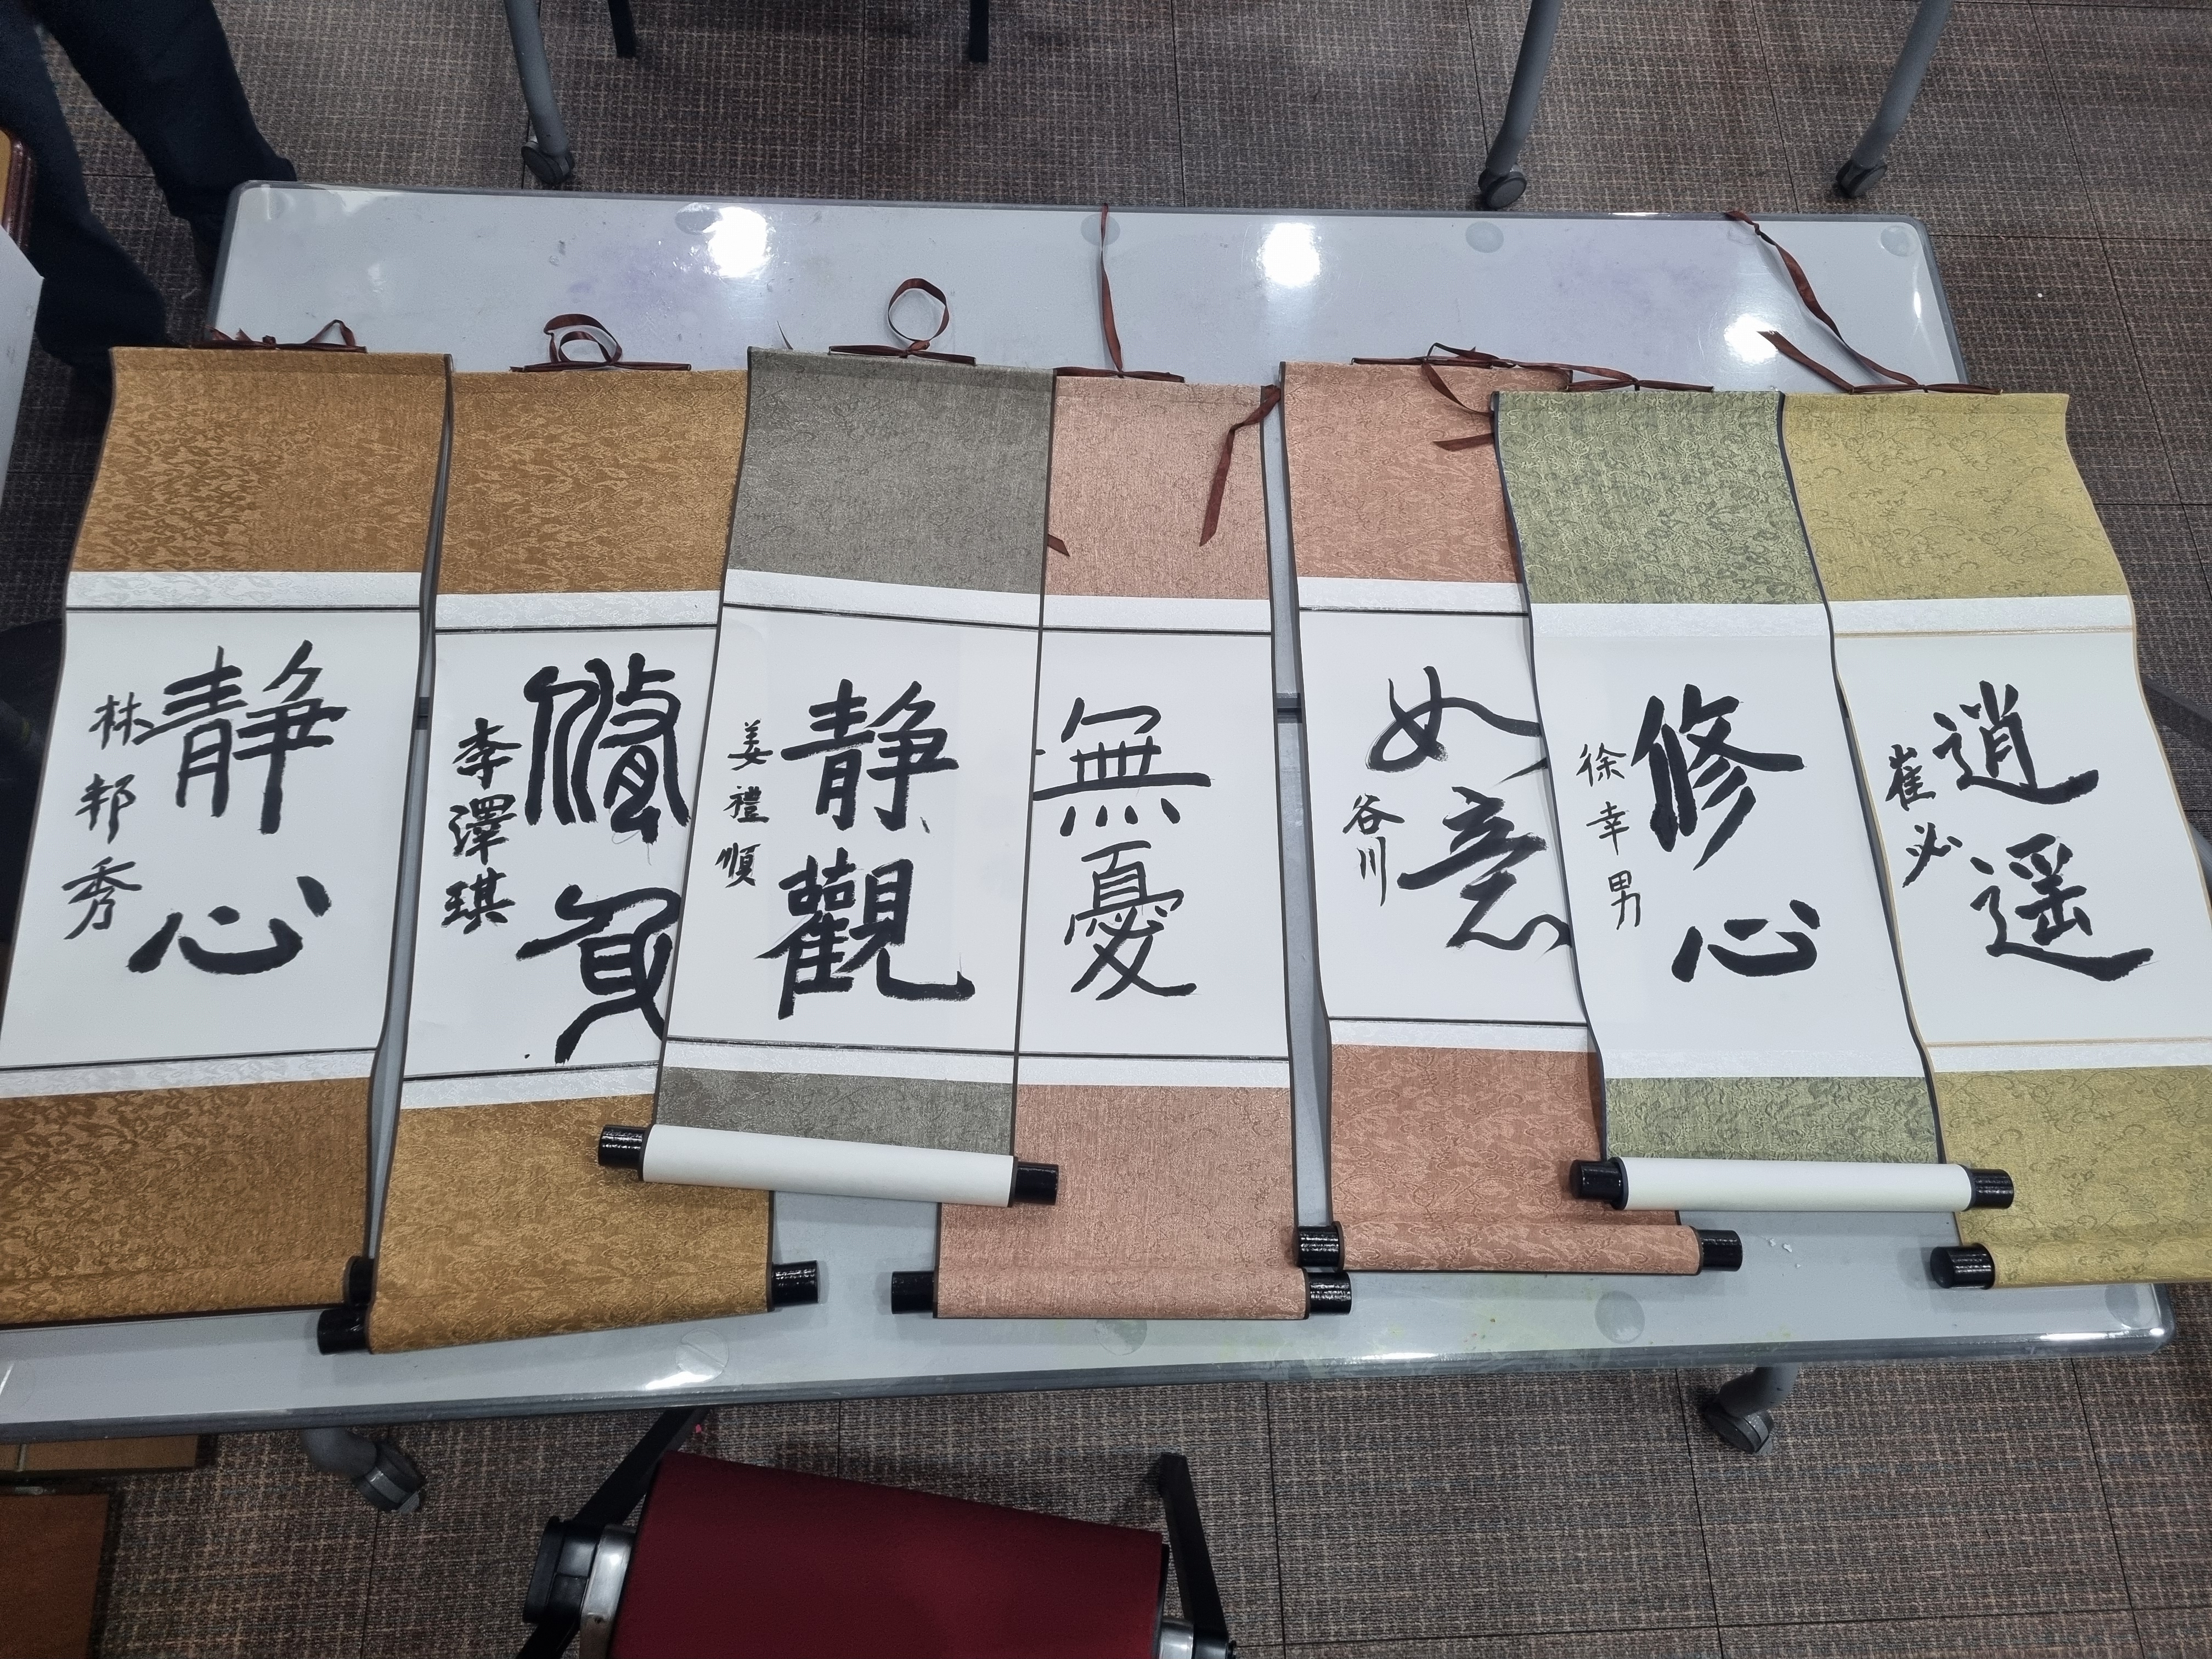 靜心
林邦秀
李澤琪
靜觀
姜禮順
無憂
如意
谷川
修心
徐幸男
逍遥
崔必